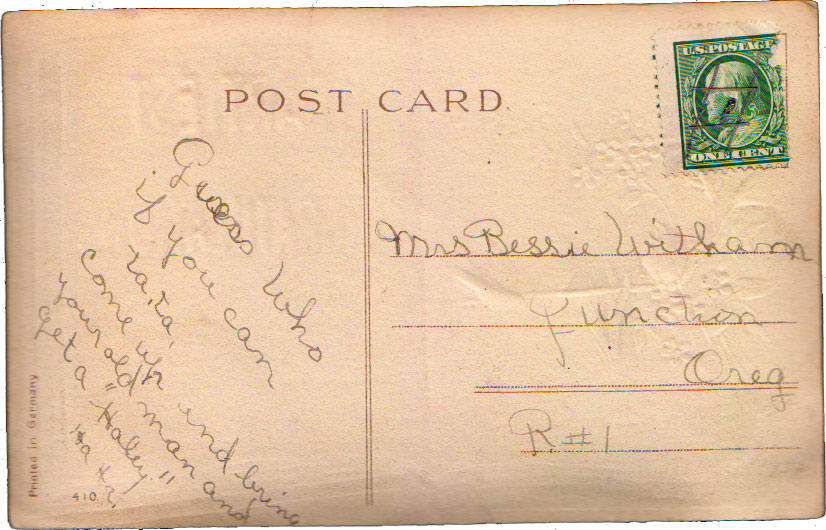 POST CARD.
U.S. POSTAGE
ONE CENT
Guess Who
if you can
ta, ta,
come up and bring
your old man and
Get a "Haley"
Ha
Mrs Bessie Witham
Junction
Oreg
R. #1
Printed in Germany
410